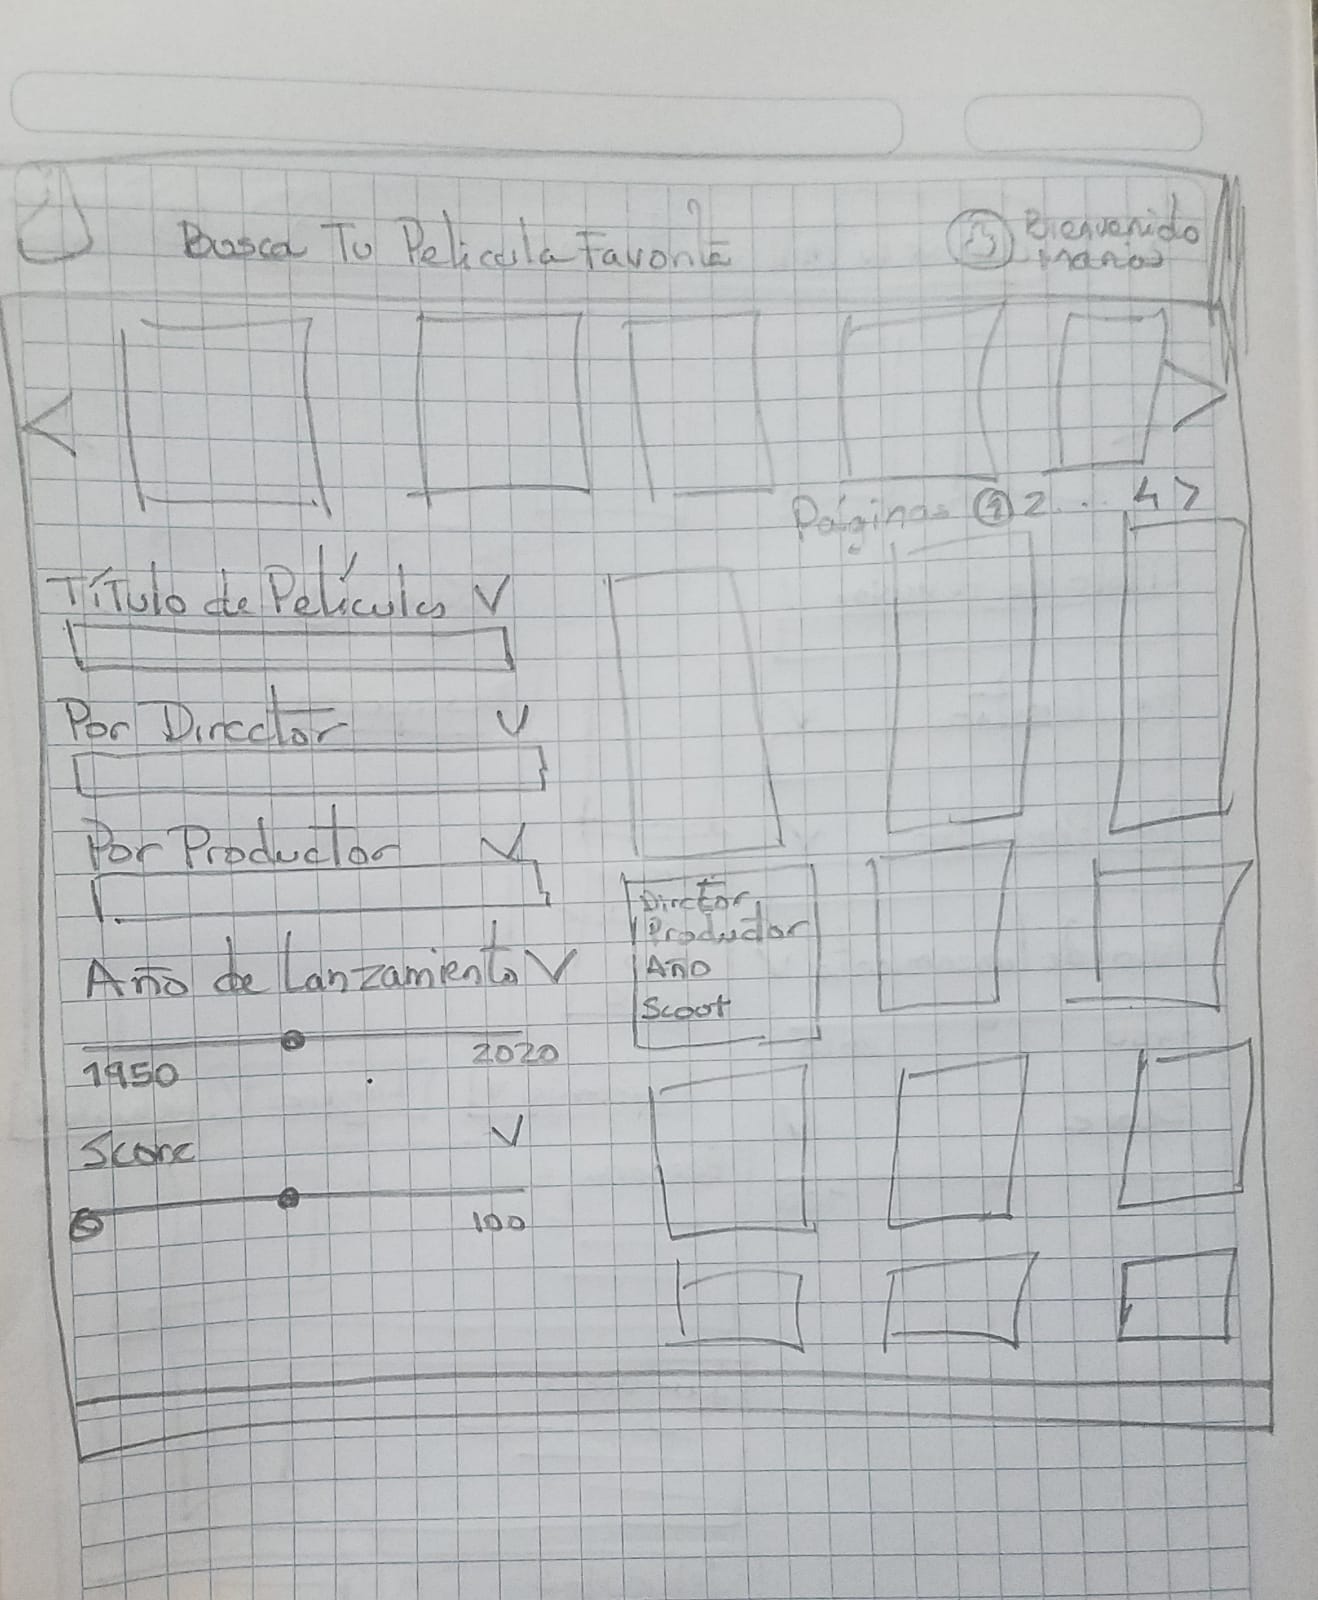 Busca Tu Película Favorita
Bienvenido
Páginas 1 2 ... 4 >
Título de Películas V
Por Director V
Por Productor V
Año de Lanzamiento V
1950 2020
Score V
0 100
Dirctor
Productor
Año
Scoot